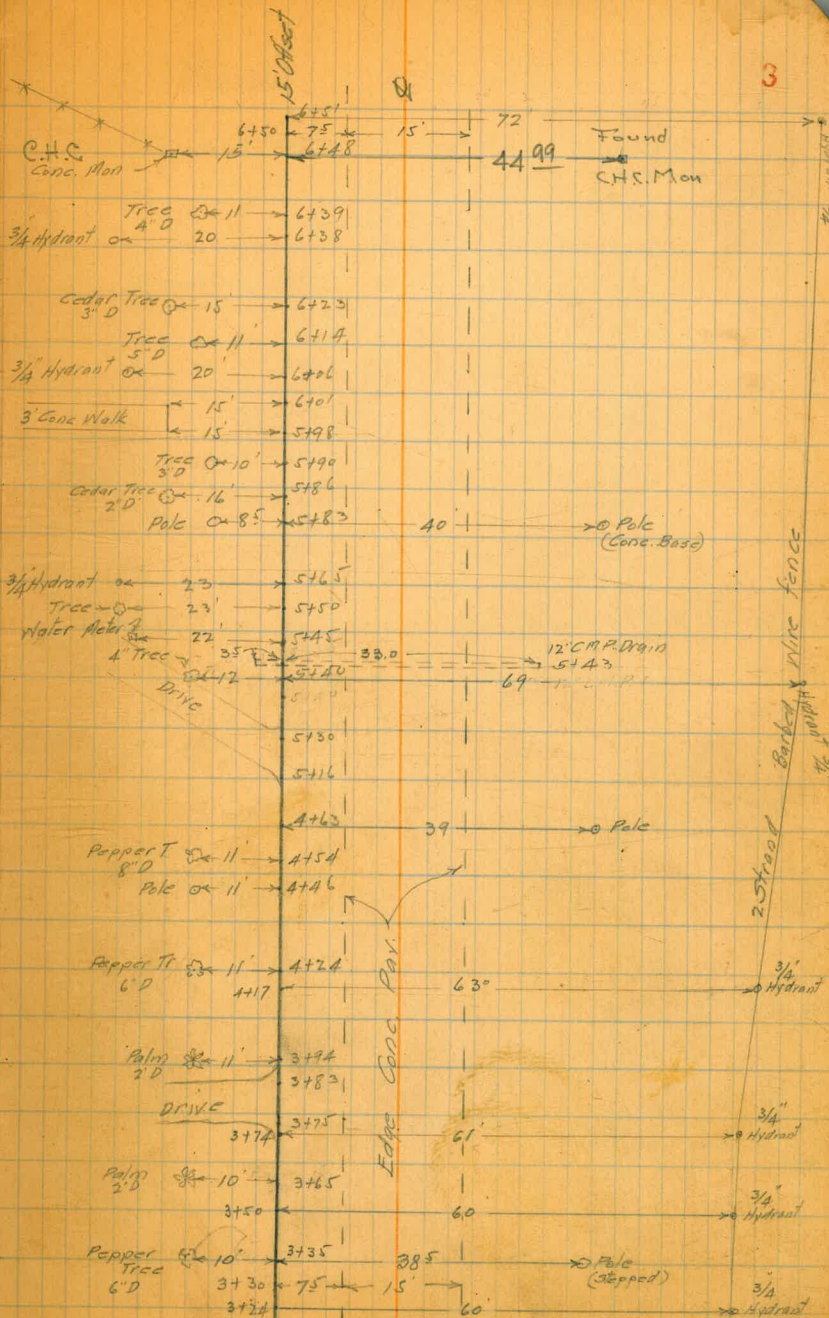 3
15' Offset
6+51
72'
6+50 7⁵ 15'
Found
C.H.C. 15' 6+48 44⁹⁹
Conc. Mon
C.H.C. Mon
Tree 11' 6+39
4" D
3/4" Hydrant 20 6+38
Cedar Tree 15' 6+23
3" D
Tree 11' 6+14
5" D
3/4" Hydrant 20' 6+06
15' 6+01
3' Conc Walk
15' 5+98
Tree 10' 5+90
3" D
Cedar Tree 16' 5+86
2" D
Pole 8⁵ 5+83 40 Pole
(Conc. Base)
3/4" Hydrant 23 5+65
Tree 23' 5+50
Water Meter 22' 5+45
35 33.0 12" C.M.P. Drain
5+43
4" Tree 12 5+40 69
Drive
5+30
5+16
4+63 39 Pole
Pepper T 11' 4+54
8" D
Pole 11' 4+46
Pepper Tr 11' 4+24
6" D
4+17 63⁰ 3/4" Hydrant
Palm 11' 3+94
2' D
3+83
Drive
3+75
3+74 61' 3/4" Hydrant
Palm 10' 3+65
2' D
3+50 60 3/4" Hydrant
Pepper Tree 10' 3+35 38⁵ Pole
6" D
(Stepped)
3+30 7⁵ 15'
3+24 60' 3/4" Hydrant
Edge Conc. Pav.
2 Strand Barbed Wire Fence